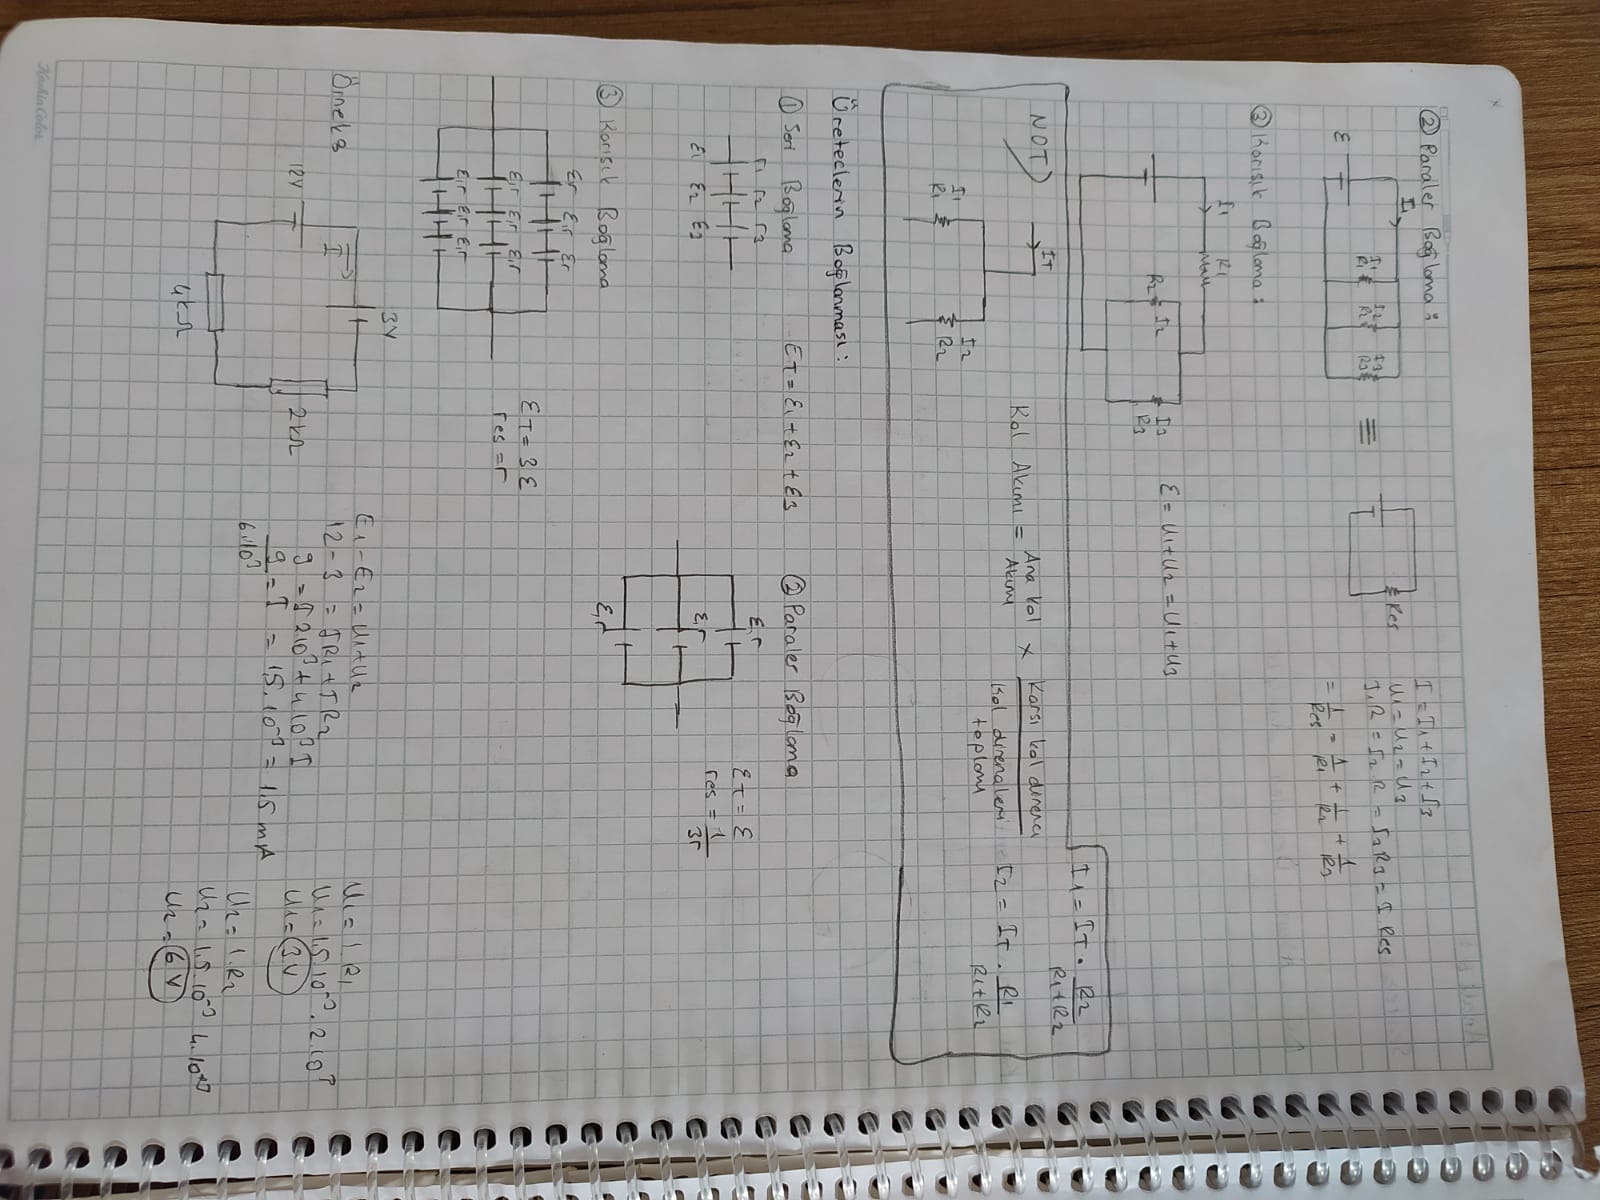 ② Paraler Bağlama :
I1
I1
R1
I2
R2
I3
R3
ε
≡
Res
I = I1 + I2 + I3
U1 = U2 = U3
I1R = I2 R = I3R3 = I Res
= 1/Res = 1/R1 + 1/R2 + 1/R3
③ Karışık Bağlama :
I1
R1
R2
I2
I3
R3
ε = U1+U2 = U1+U3
NOT)
IT
I1
R1
I2
R2
Kol Akımı = Ana kol Akımı × Karsı kol direnci / Kol direnaleri toplamı
I1 = IT . R2/R1+R2
I2 = IT . R1/R1+R2
Üreteclerin Bağlanması :
① Seri Bağlama
ET = ε1 + ε2 + ε3
r1 r2 r3
ε1 ε2 ε3
② Paraler Bağlama
ε,r
ε,r
ε,r
εT = ε
res = 1/3r
③ Karışık Bağlama
εr ε,r εr
ε,r ε,r ε,r
ε,r ε,r ε,r
εT = 3ε
res = r
Örnek:
3V
I
12V
2kΩ
4kΩ
E1 - E2 = U1+U2
12 - 3 = IR1 + IR2
9 = I 2 10³ + 4 10³ I
9/6.10³ = I = 1,5. 10⁻³ = 1,5 mA
U1 = I. R1
U1 = 1,5 10⁻³ . 2 10³
U1 = 3V
U2 = I. R2
U2 = 1,5. 10⁻³ 4. 10³
U2 = 6 V
KashinColor